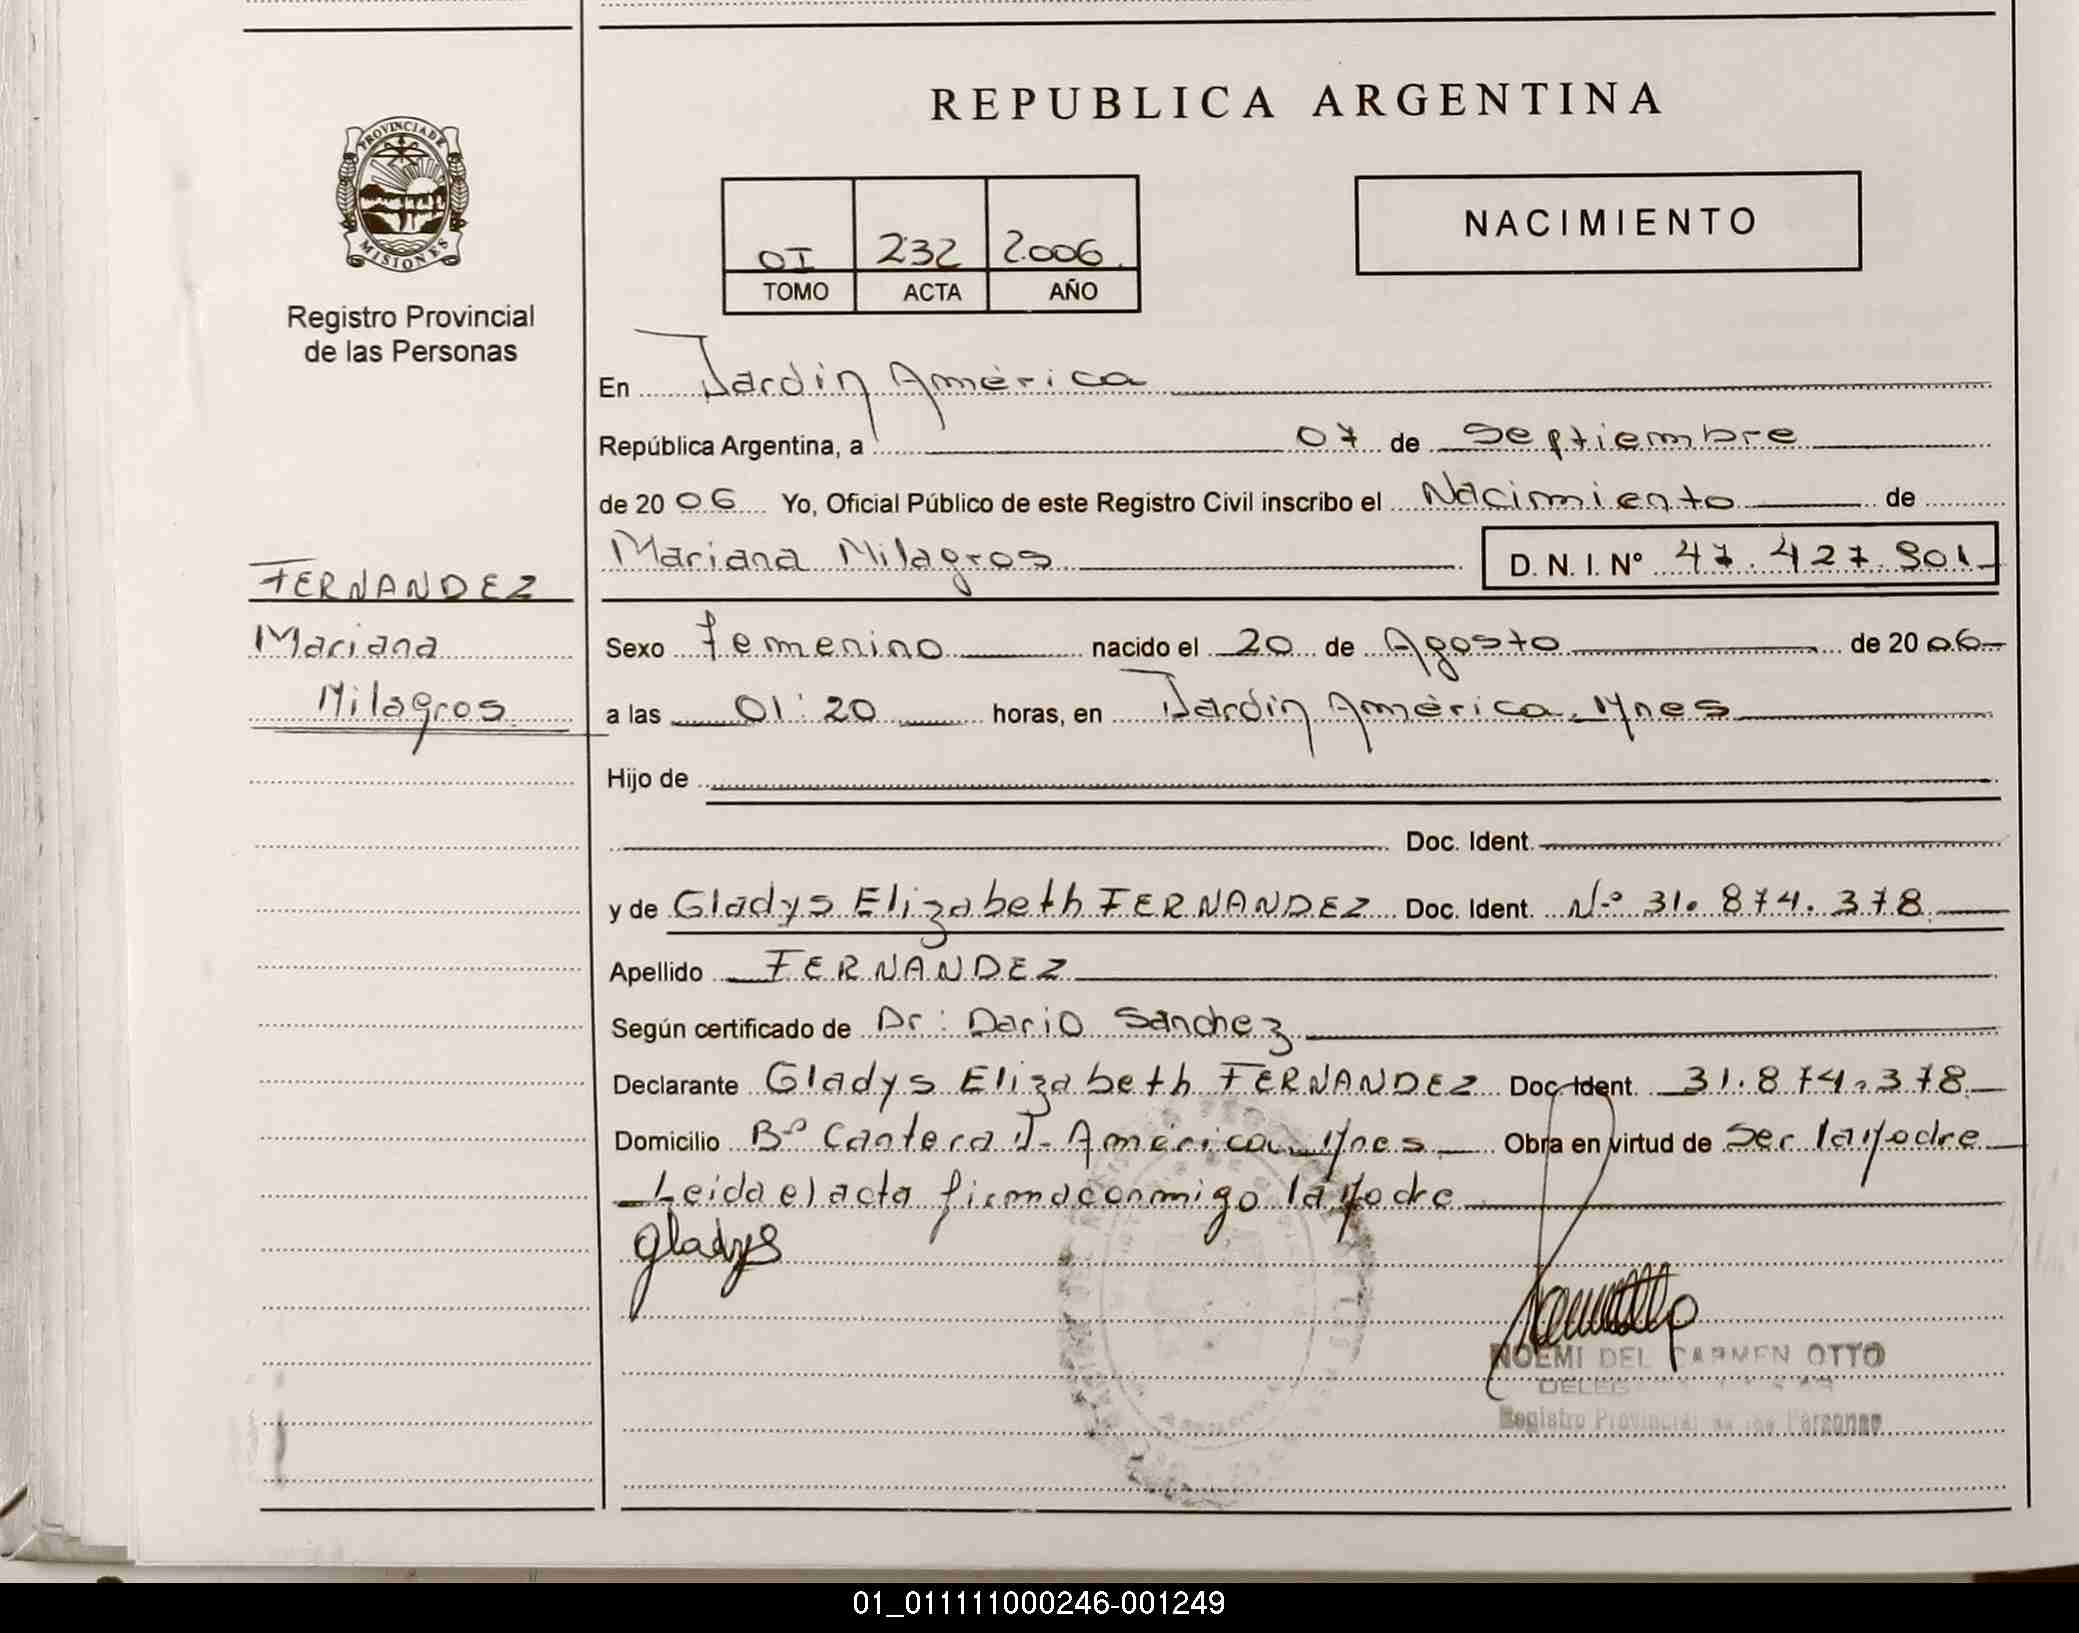 REPUBLICA ARGENTINA
PROVINCIA DE
MISIONES
Registro Provincial
de las Personas
OI 232 2.006.
TOMO ACTA AÑO
NACIMIENTO
En Jardín América
República Argentina, a 07 de Septiembre
de 20 06 Yo, Oficial Público de este Registro Civil inscribo el Nacimiento de
Mariana Milagros D. N. I. Nº 47.427.901
FERNANDEZ
Mariana
Milagros
Sexo femenino nacido el 20 de Agosto de 20 06
a las 01:20 horas, en Jardín América Mnes
Hijo de
Doc. Ident.
y de Gladys Elizabeth FERNANDEZ Doc. Ident. Nº 31.874.378
Apellido FERNANDEZ
Según certificado de Dr: Dario Sanchez
Declarante Gladys Elizabeth FERNANDEZ Doc. Ident. 31.874.378
Domicilio Bº Cantera J. América Mnes Obra en virtud de Ser la Madre
Leida el acta firma conmigo la Madre
gladys
NOEMI DEL CARMEN OTTO
Registro Provincial de las Personas
01_011111000246-001249